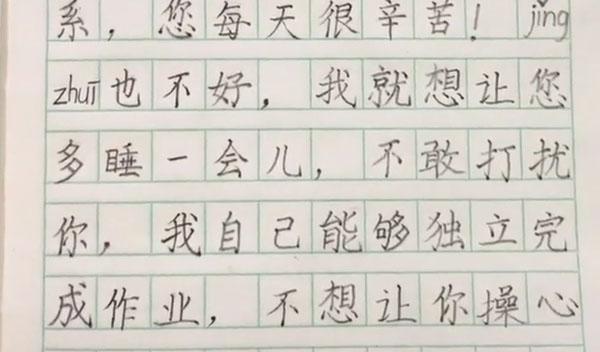 系，您每天很辛苦！jǐng
zhuī也不好，我就想让您
多睡一会儿，不敢打扰
你，我自己能够独立完
成作业，不想让你操心